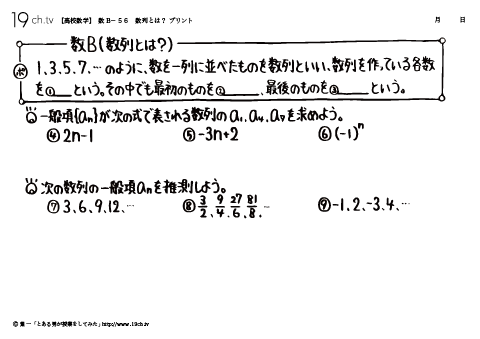 19ch.tv 【高校数学】 数B－56 数列とは? プリント 月 日
数B(数列とは?)
ポ 1、3、5、7、…のように、数を一列に並べたものを数列といい、数列を作っている各数
を①____という。その中でも最初のものを②____、最後のものを③____という。
一般項{an}が次の式で表される数列のa1、a4、a7を求めよう。
④ 2n-1 ⑤ -3n+2 ⑥ (-1)^n
次の数列の一般項anを推測しよう。
⑦ 3、6、9、12、… ⑧ 3/2、9/4、27/6、81/8、… ⑨ -1、2、-3、4、…
© 葉一「とある男が授業をしてみた」http://www.19ch.tv